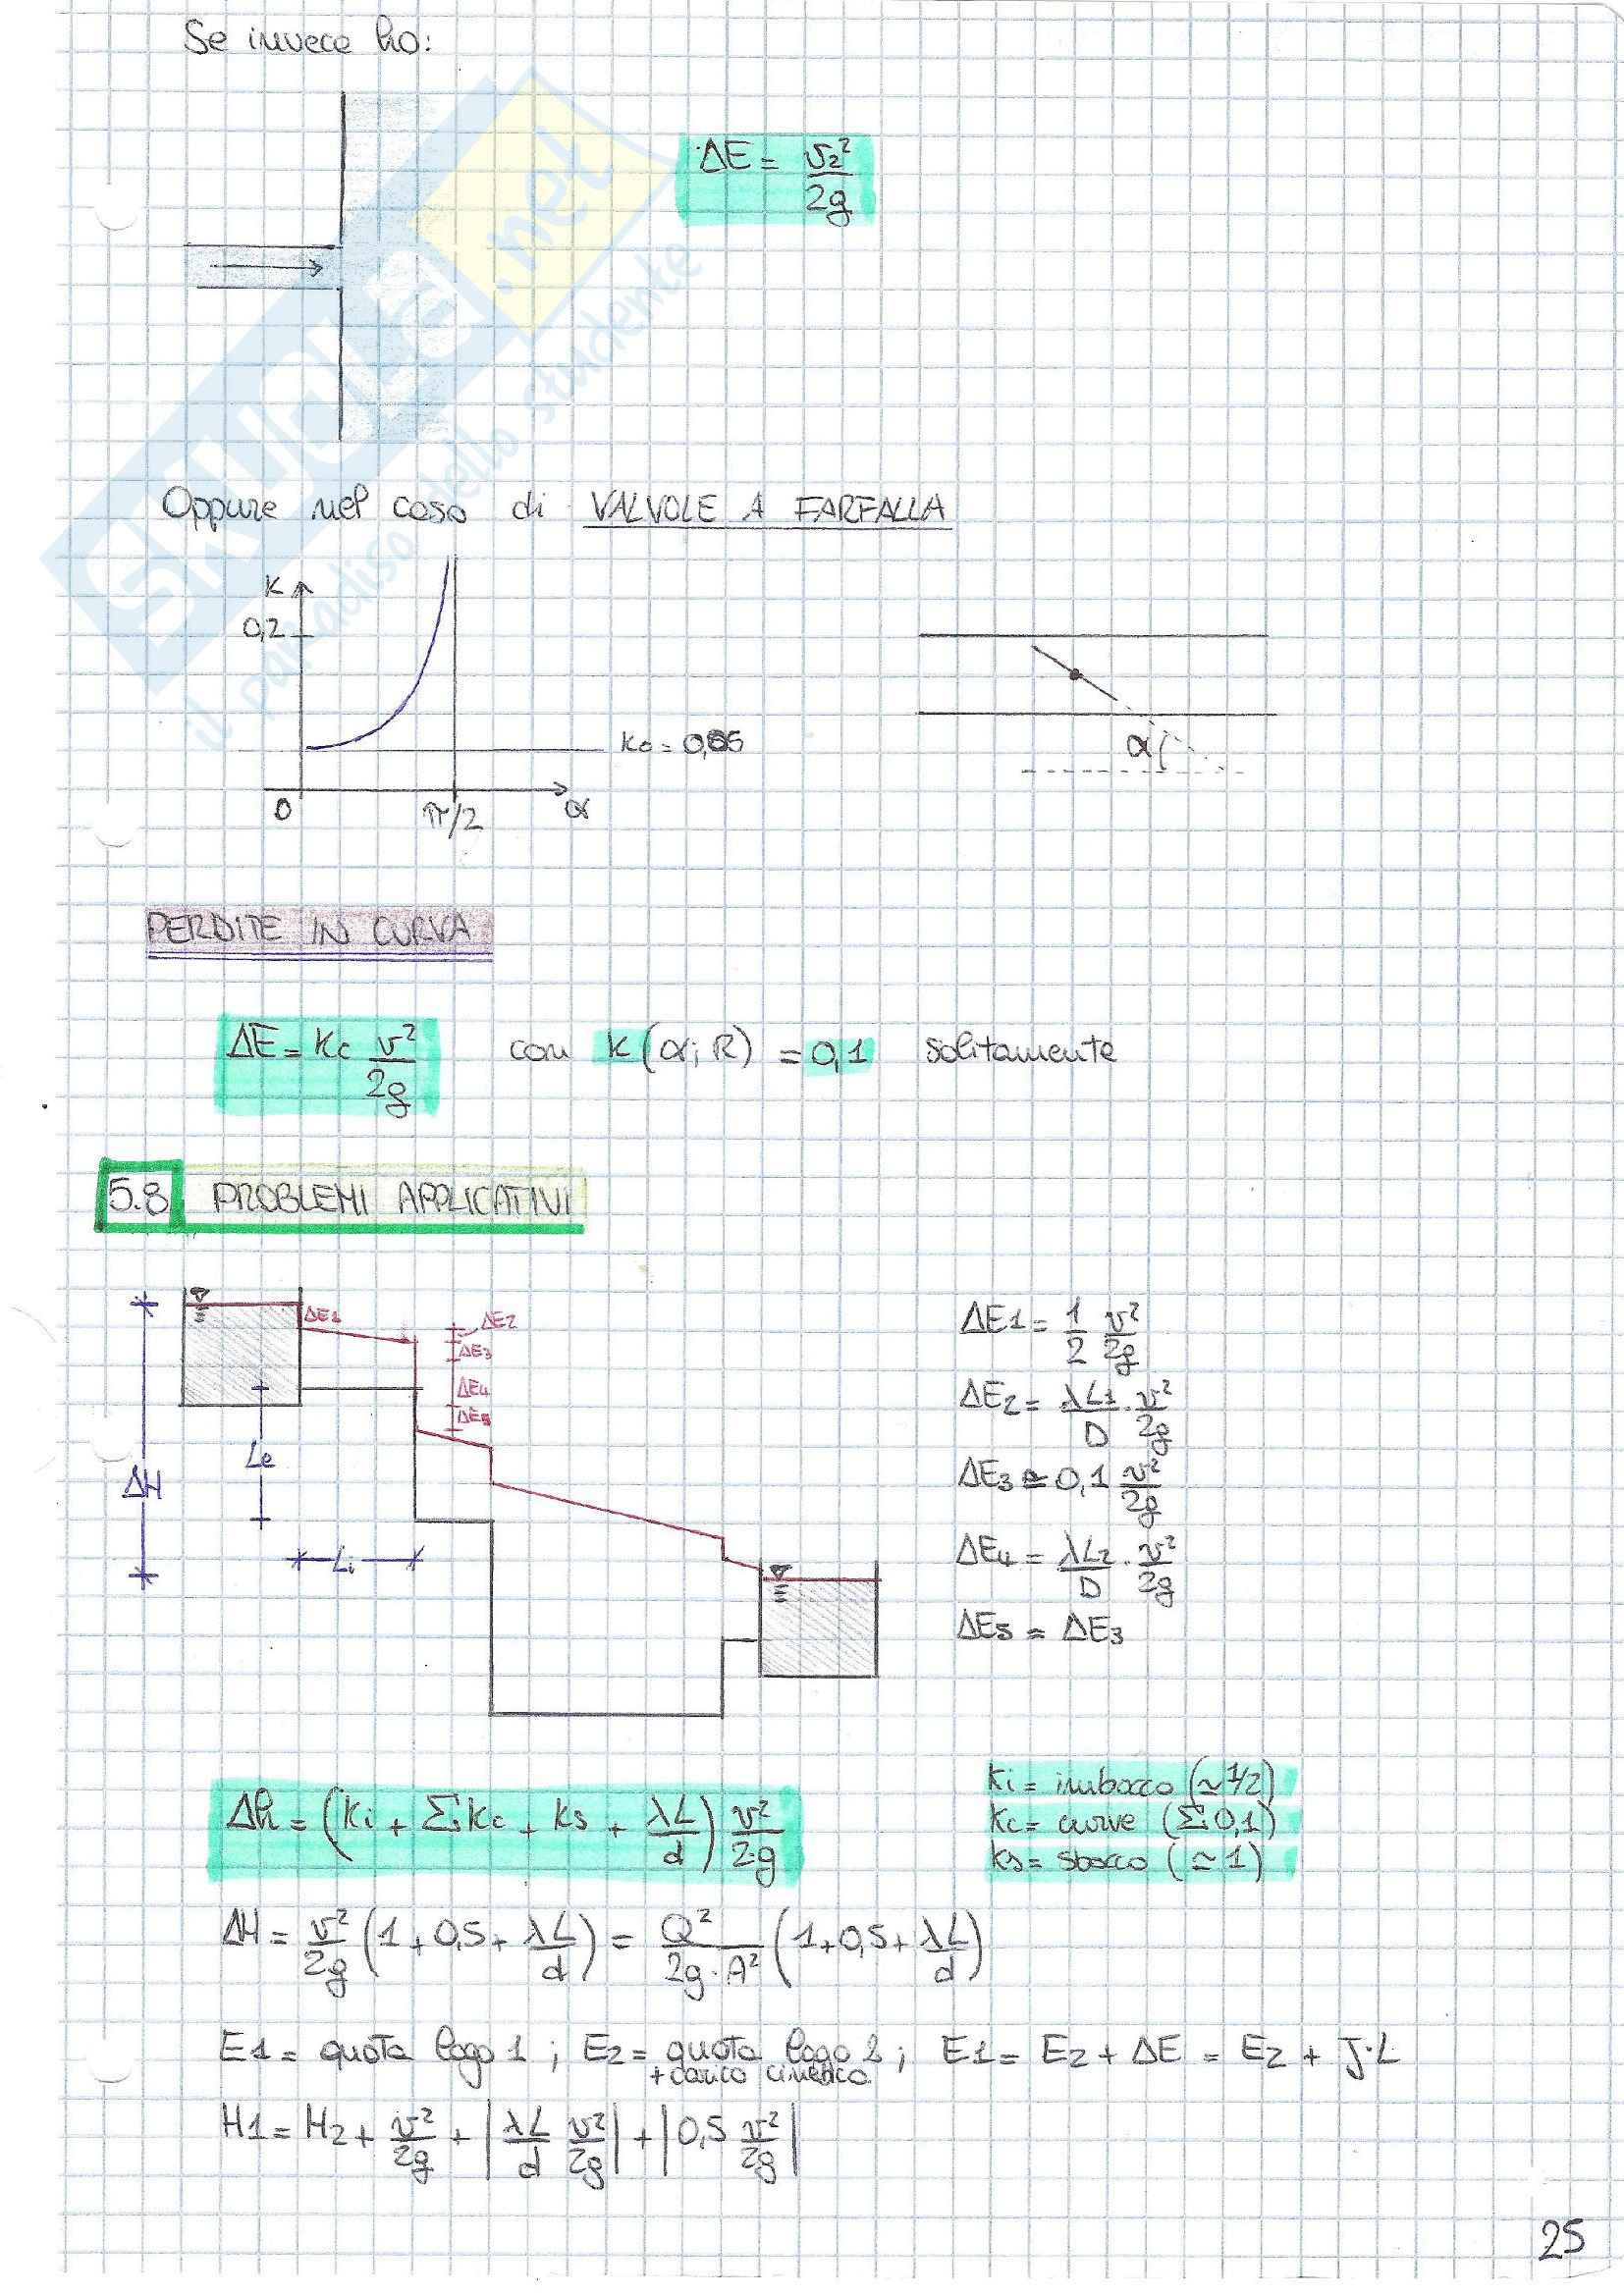 Se invece ho:
ΔE = v₂²/2g
Oppure nel caso di VALVOLE A FARFALLA
K
0,2
K₀ = 0,05
0
π/2
α
α
PERDITE IN CURVA
ΔE = Kc v²/2g con K(α; R) = 0,1 solitamente
5.8 PROBLEMI APPLICATIVI
ΔE1
ΔE2
ΔE3
ΔE4
ΔE5
ΔH
L2
L1
ΔE1 = 1/2 v²/2g
ΔE2 = λL1/D · v²/2g
ΔE3 = 0,1 v²/2g
ΔE4 = λL2/D · v²/2g
ΔE5 = ΔE3
Δh = (Ki + Σ Kc + Ks + λL/d) v²/2·g
Ki = imbocco (≃ 1/2)
Kc = curve (Σ 0,1)
Ks = sbocco (≃ 1)
ΔH = v²/2g (1 + 0,5 + λL/d) = Q²/2g·A² (1 + 0,5 + λL/d)
E1 = quota lago 1 ; E2 = quota lago 2 ; E1 = E2 + ΔE = E2 + J·L
+ carico cinetico
H1 = H2 + v²/2g + |λL/d v²/2g| + |0,5 v²/2g|
25
SKUOLA.net
il paradiso dello studente